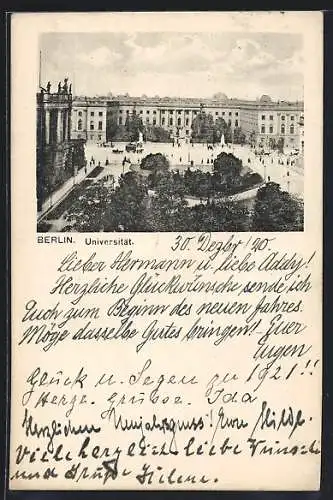 BERLIN. Universität.
30. Dezbr /20.
Lieber Hermann u. liebe Addy!
Herzliche Glückwünsche sende ich
Euch zum Beginn des neuen Jahres.
Möge dasselbe Gutes bringen!! Euer
Eugen
Glück u. Segen zu 1921!!
Herzl. Grüsse. Ida
Herzlichen Neujahrsgruss! Eure Hilde.
Viele herzlich liebe Wünsche
und Grüße